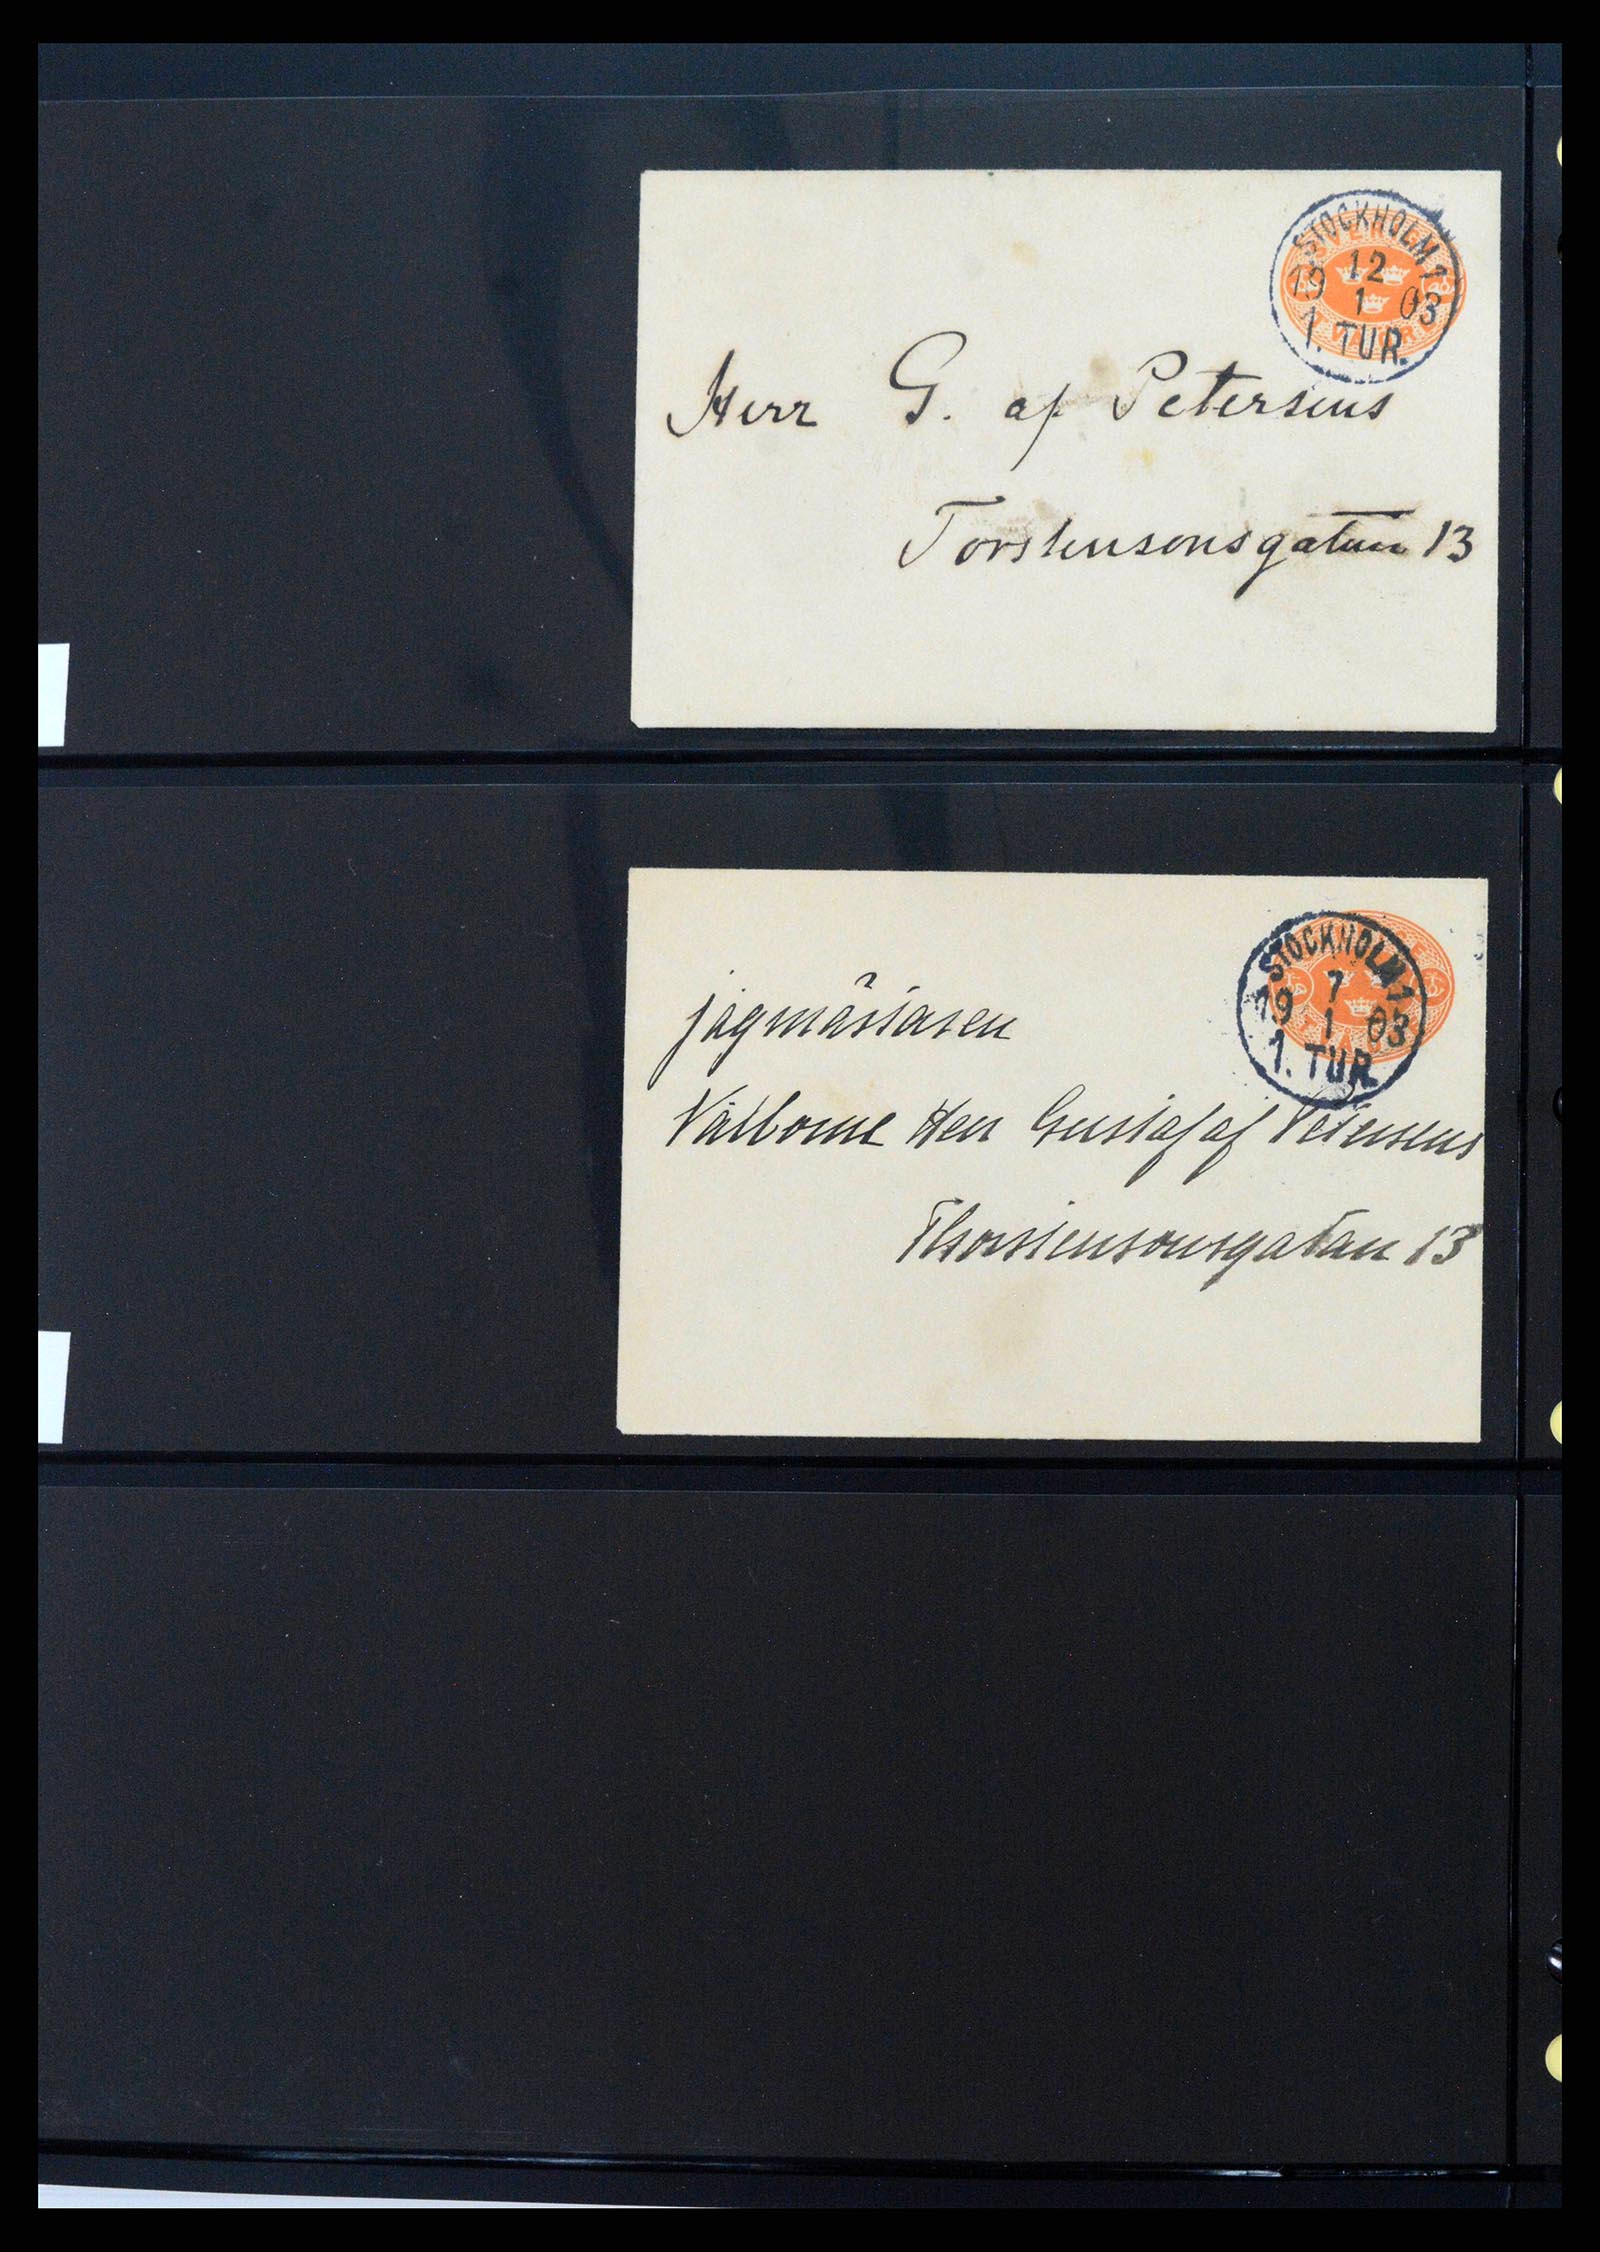 STOCKHOLM 1
12
19 1 03
1. TUR.
Herr G. af Petersens
Torstensonsgatan 13
STOCKHOLM 1
7
19 1 03
1. TUR.
jägmästaren
Välborne Herr Gustaf af Petersens
Thorstensonsgatan 13